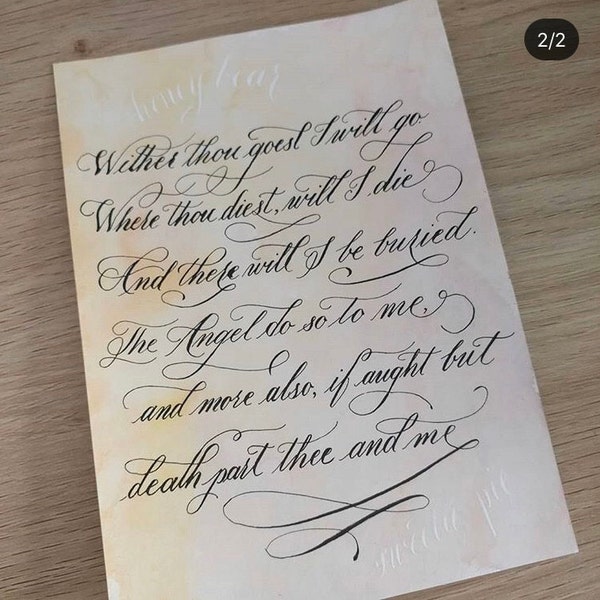 2/2
honey bear
Wither thou goest I will go
Where thou diest, will I die
And there will I be buried.
The Angel do so to me,
and more also, if aught but
death part thee and me
sweetie pie